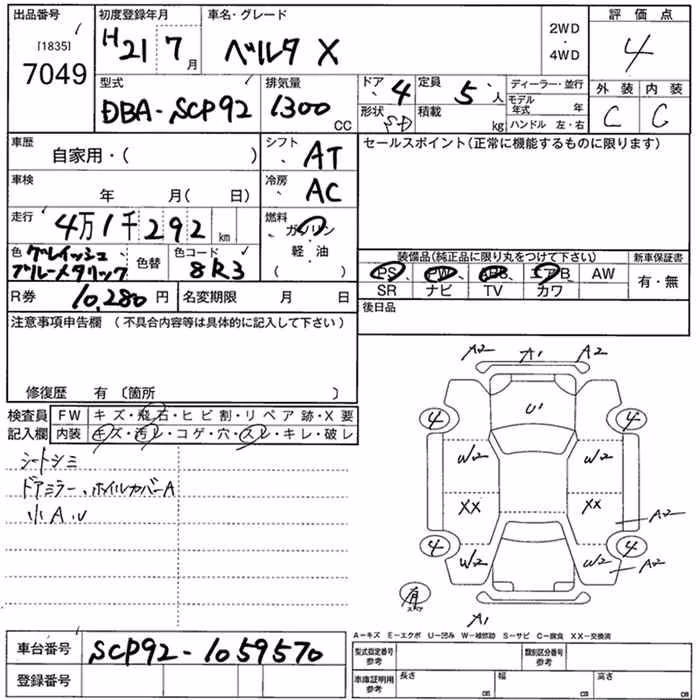 出品番号 初度登録年月 車名・グレード 評価点
[1835]
7049
H21 7月 ベルタ X 2WD ・ 4WD 4
型式 排気量 ドア 4 定員 5人 ディーラー・並行 外装 内装
DBA-SCP92 1300 CC 形状 SD 積載 kg モデル年式 年 C C
ハンドル 左・右
車歴 自家用・( ) シフト AT セールスポイント(正常に機能するものに限ります)
車検 年 月( 日) 冷房 AC
走行 4万1千292 km 燃料 ガソリン・軽油 ( )
色 グレイッシュブルーメタリック 色替 色コード 8R3
装備品(純正品に限り丸をつけて下さい) 新車保証書
PS PW ABS エアB AW 有・無
SR ナビ TV カワ
R券 10,280円 名変期限 月 日 後日品
注意事項申告欄 (不具合内容等は具体的に記入して下さい)
修復歴 有 〔箇所 〕
検査員記入欄 FW キズ・飛石・ヒビ割・リペア跡・X要
内装 キズ・汚レ・コゲ・穴・スレ・キレ・破レ
シートシミ
ドアミラー、ホイルカバーA
小A、U
A2 A1 A2
U1
4 4
W2 W2
XX XX
A2
4 4
W2 W2 A2
有
A1
A-キズ E-エクボ U-凹み W-補修跡 S-サビ C-腐食 XX-交換済
車台番号 SCP92-1059570
登録番号
型式指定番号 参考 類別区分番号 参考
車庫証明用 参考 長さ cm 幅 cm 高さ cm